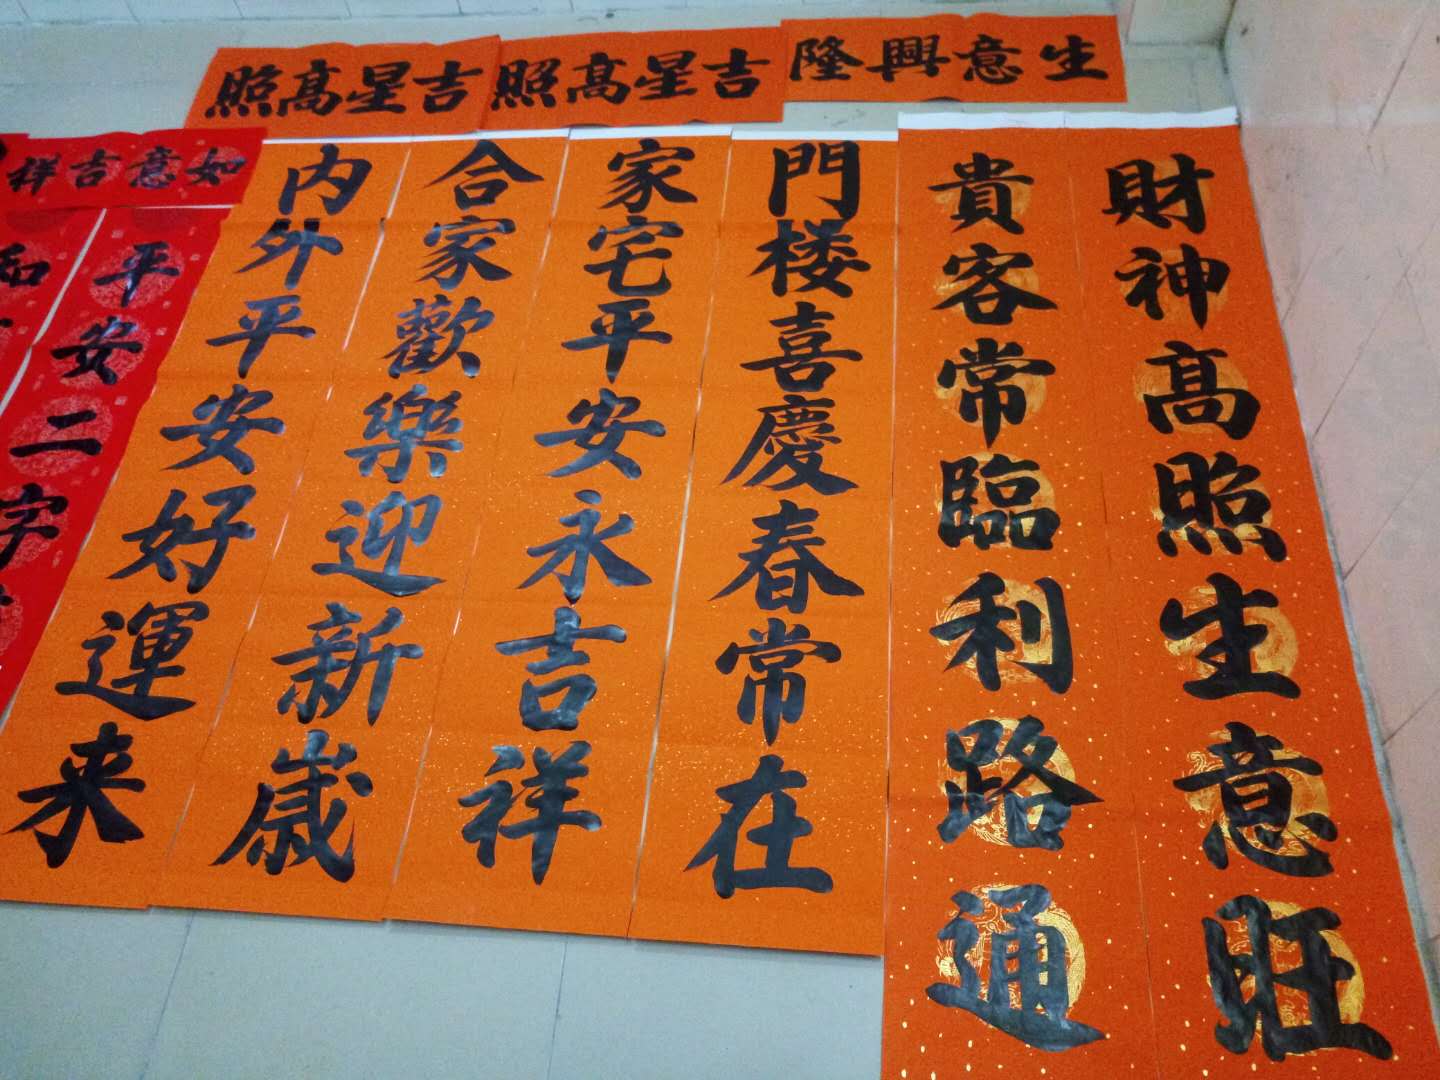 生意興隆
吉星髙照
吉星髙照
財神髙照生意旺
貴客常臨利路通
門楼喜慶春常在
家宅平安永吉祥
合家歡樂迎新嵗
内外平安好運来
如意吉祥
平安二字
和